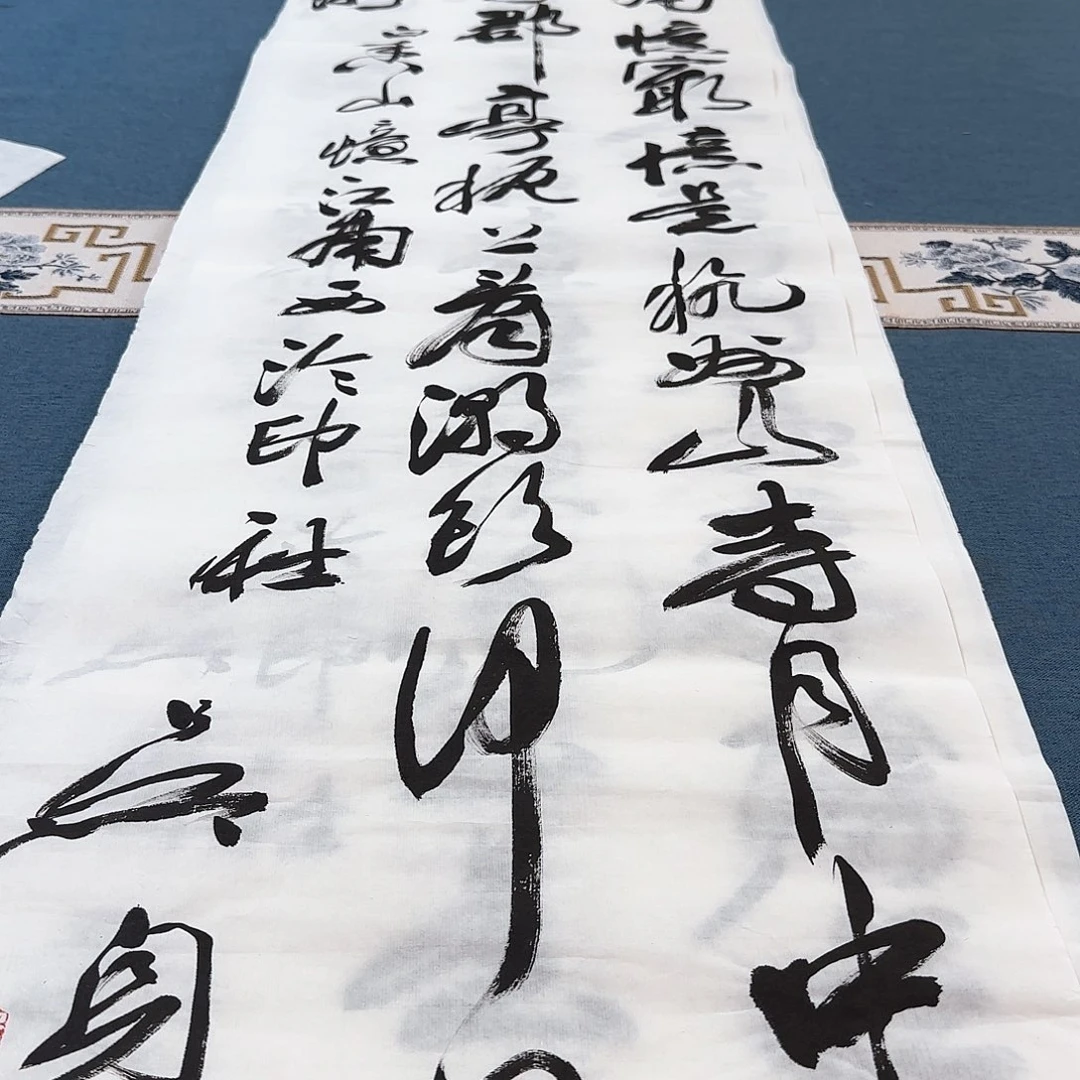 南憶最憶是杭州山寺月中
郡亭枕上看潮頭何日
山憶江南西泠印社